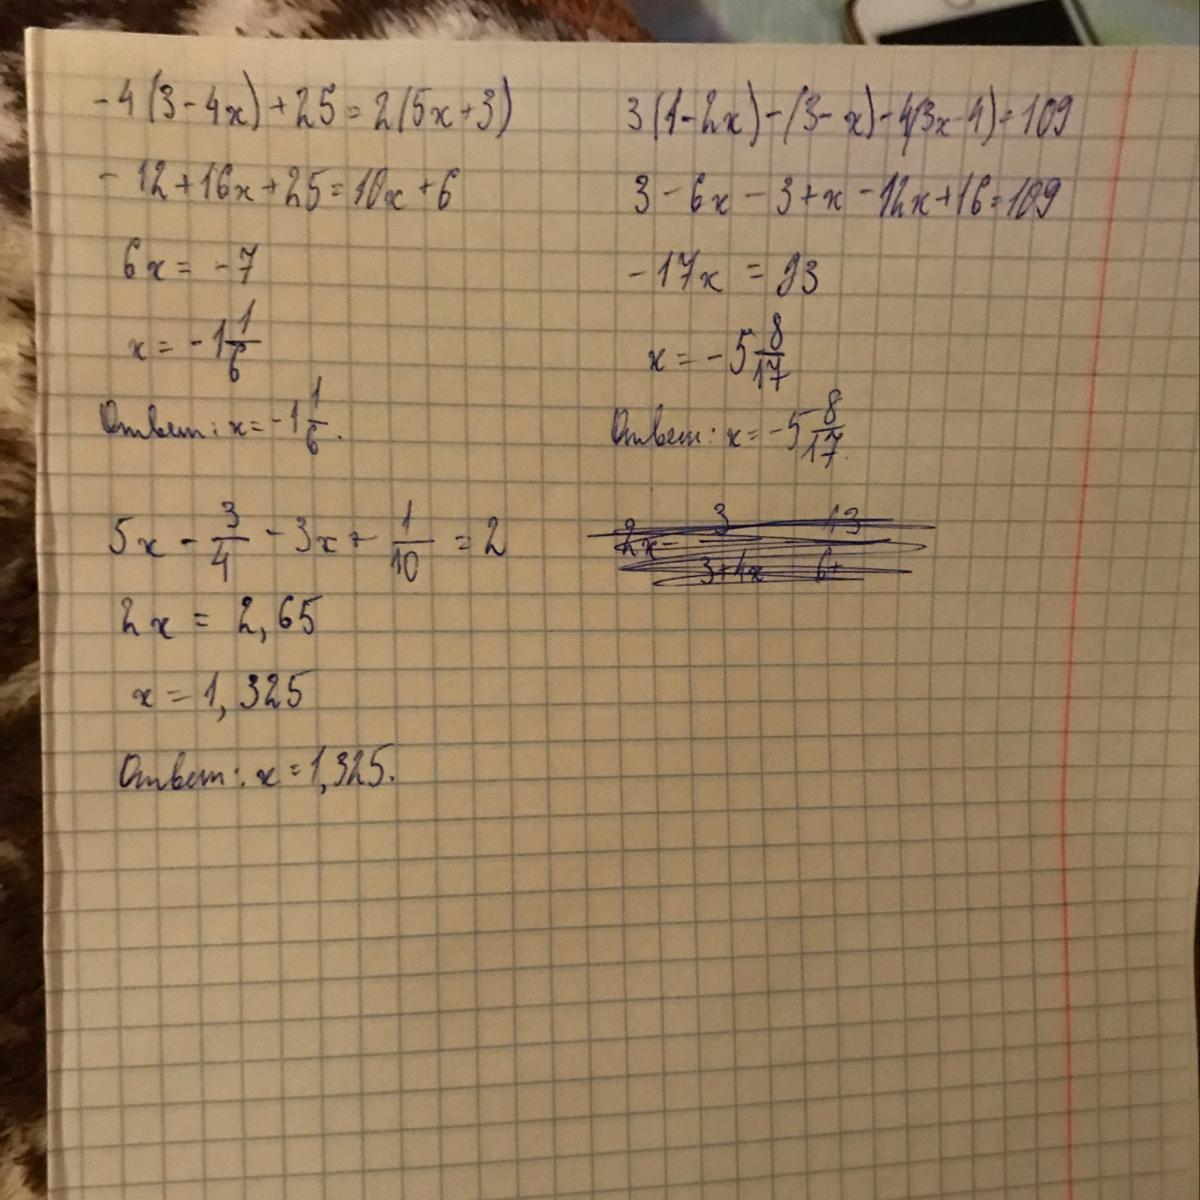 -4(3-4x)+25=2(5x+3)
-12+16x+25=10x+6
6x = -7
x = -1 1/6
Ответ: x = -1 1/6.
3(1-2x)-(3-x)-4(3x-4)=109
3-6x-3+x-12x+16=109
-17x = 93
x = -5 8/17
Ответ: x = -5 8/17.
5x - 3/4 - 3x + 1/10 = 2
2x = 2,65
x = 1,325
Ответ: x = 1,325.